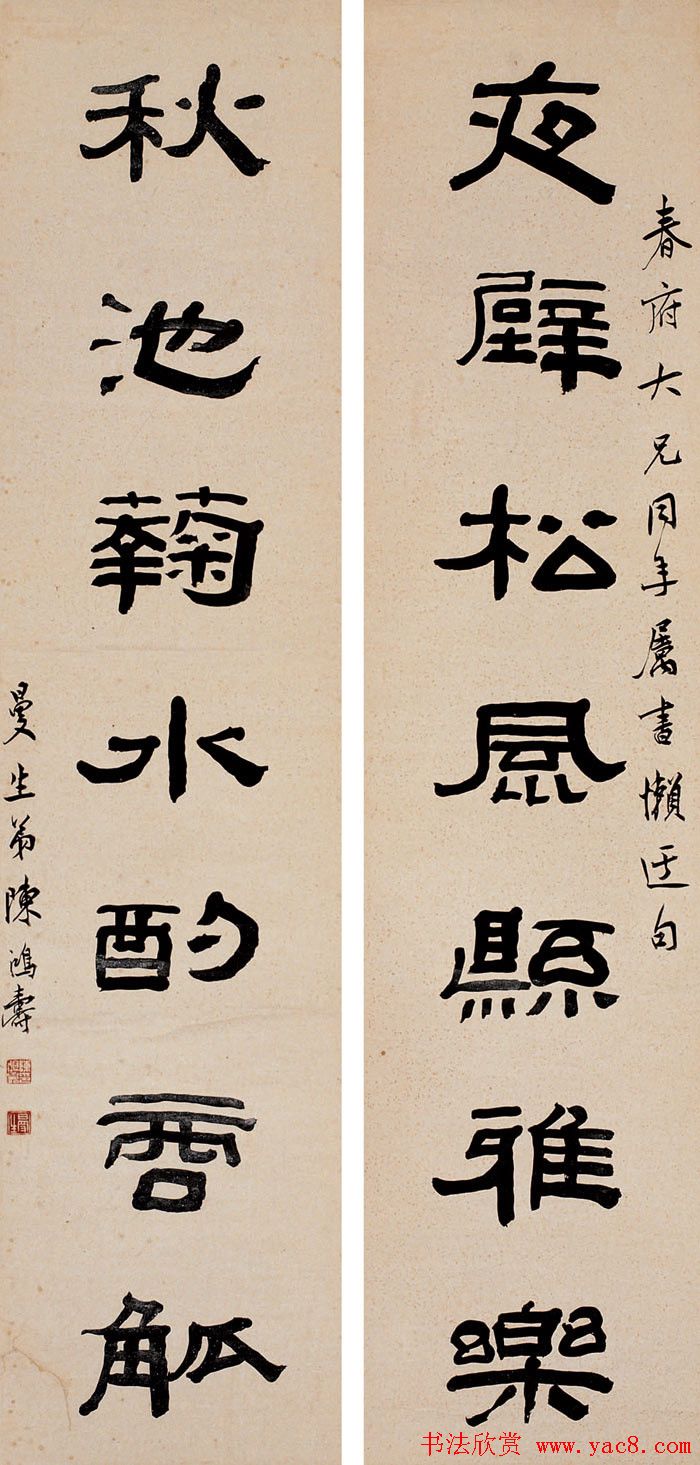 春府大兄同年屬書懶迂句
夜壁松風縣雅樂
秋池蘜水酌觚
曼生弟陳鴻壽
书法欣赏 www.yac8.com